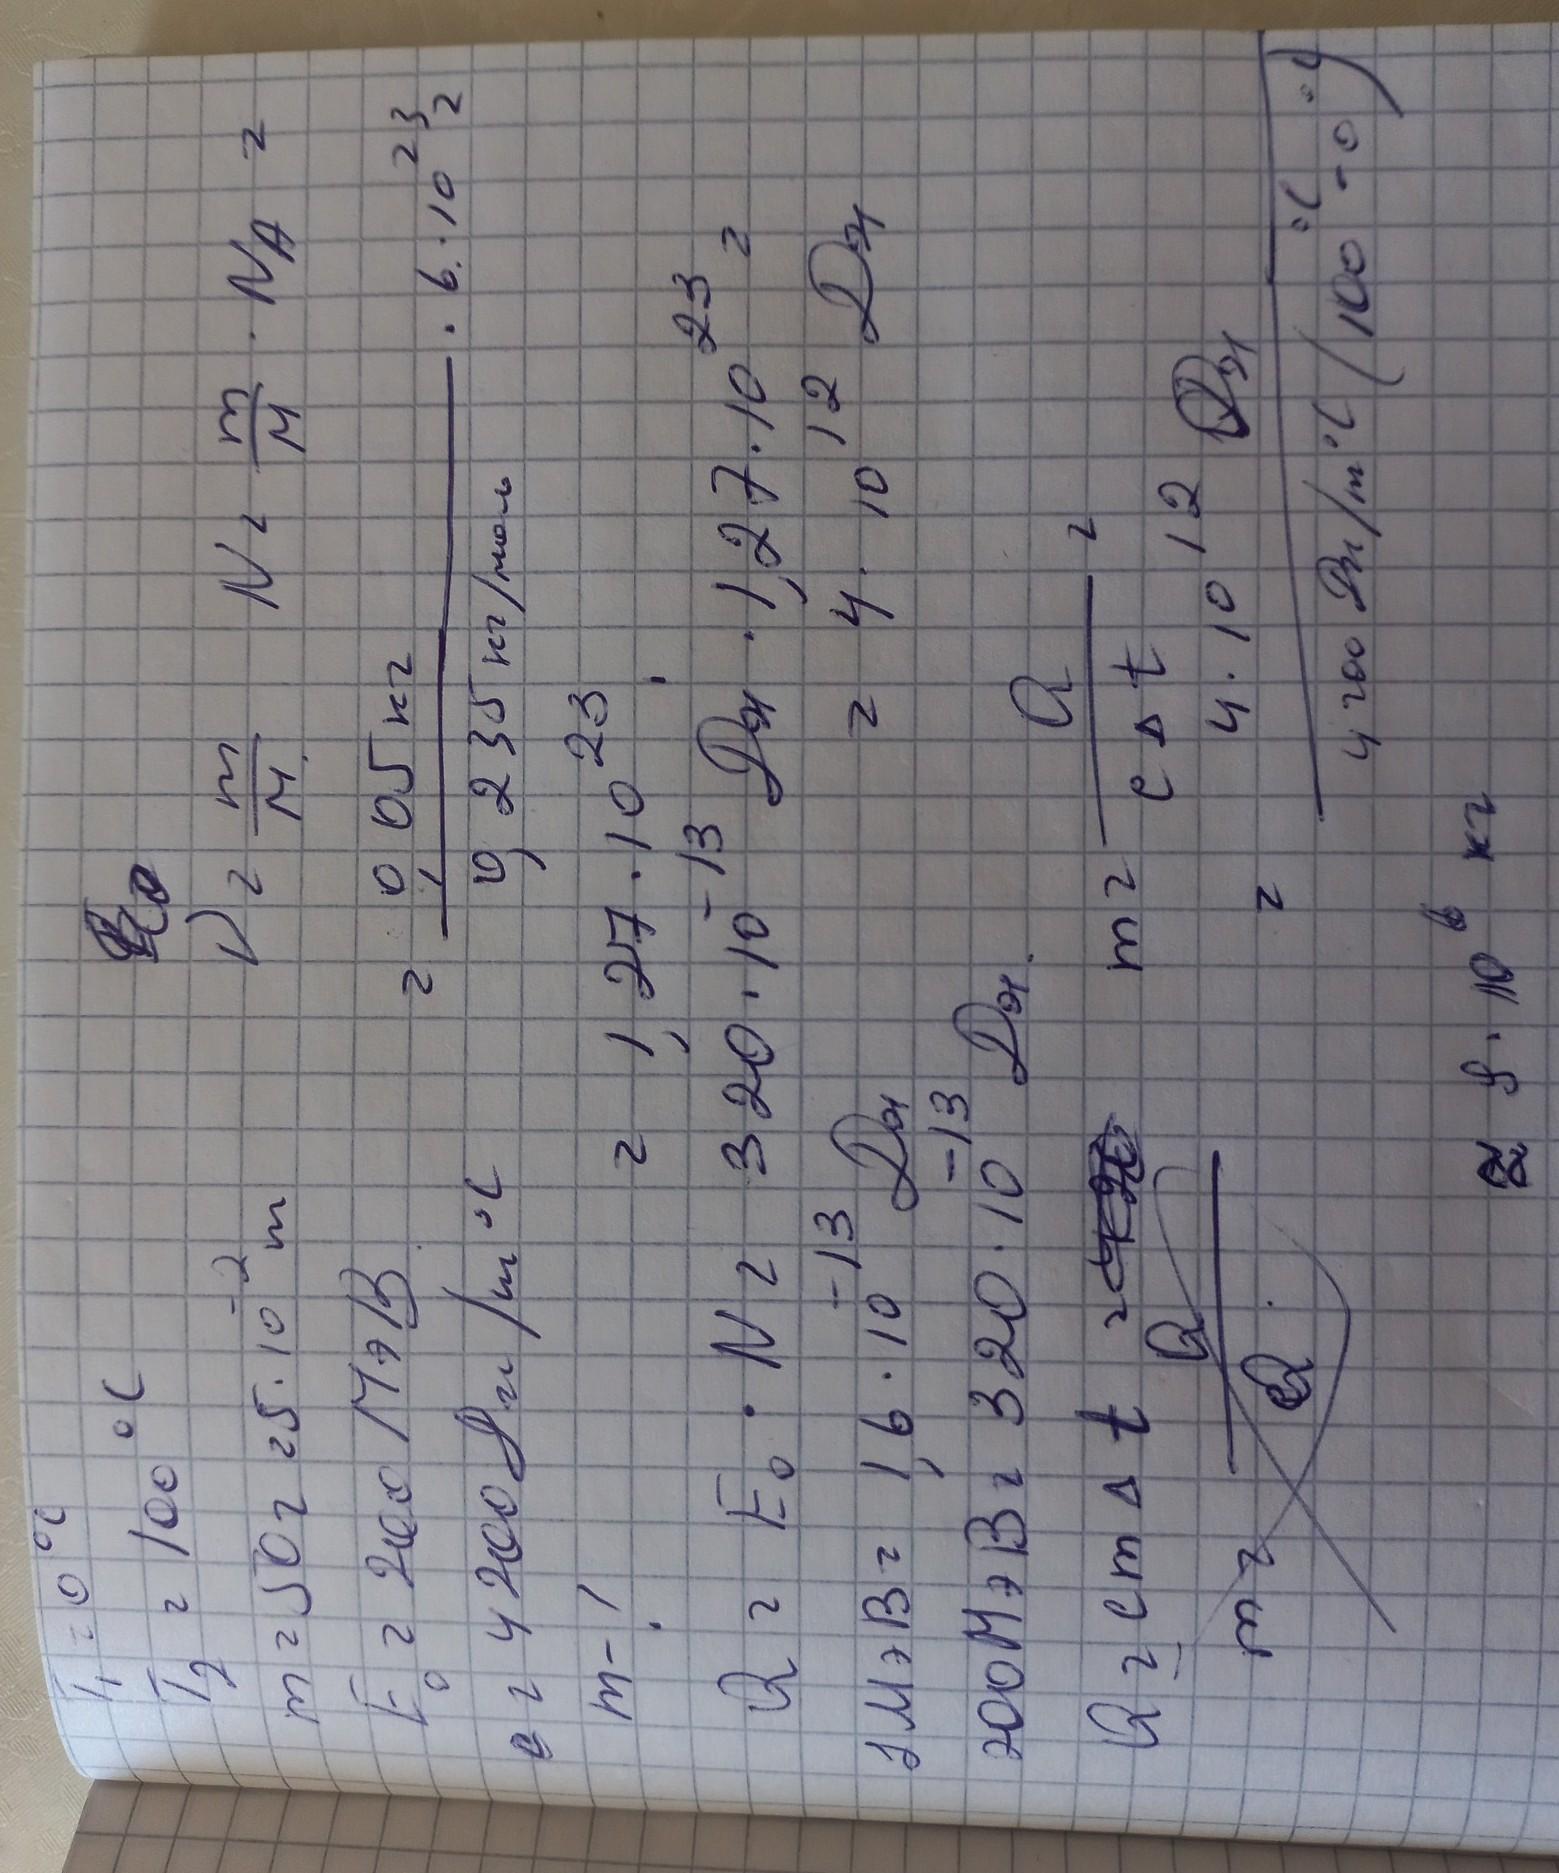 T₁ = 0 °C
T₂ = 100 °C
m = 50 г = 5 · 10⁻² m
E₀ = 200 МэВ
c = 4 200 Дж/m °C
m - ?
ν = m/M N = m/M · N_A =
= 0,05 кг / 0,235 кг/моль · 6 · 10²³ =
= 1,27 · 10²³.
Q = E₀ · N = 320 · 10⁻¹³ Дж · 1,27 · 10²³ =
= 4 · 10¹² Дж
1 МэВ = 1,6 · 10⁻¹³ Дж
200 МэВ = 320 · 10⁻¹³ Дж.
Q = c m Δ t
m = Q
m = Q / c Δ t =
= 4 · 10¹² Дж / 4 200 Дж/m °C (100 °C - 0 °C)
≈ 9 · 10⁶ кг